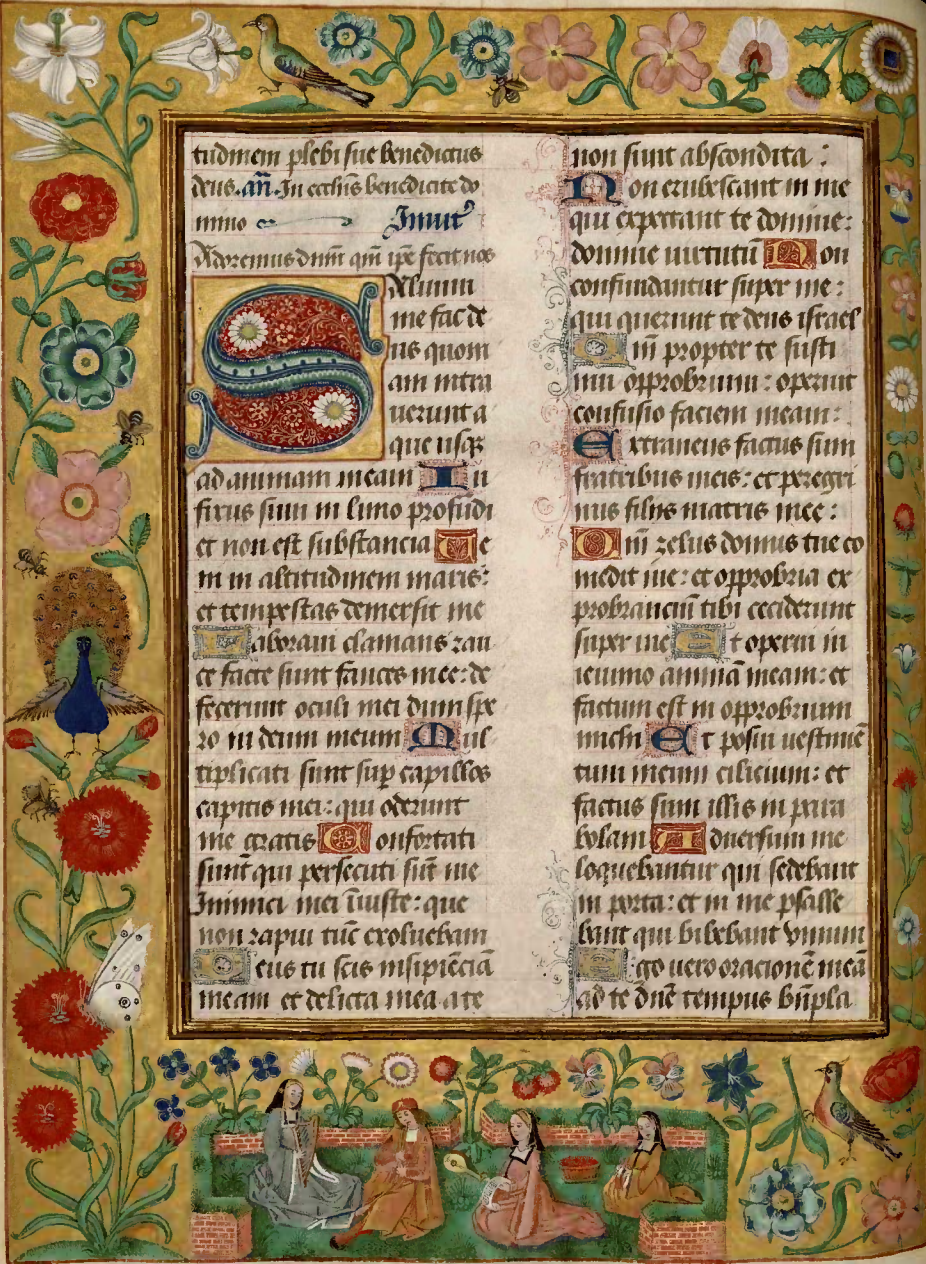 tudinem plebi sue benedictus
deus. añ. In ecclis benedicite do
mino Inuit̃
Adoremus dnm̃ qm̃ ipe fecit nos
Saluum
me fac de
us quom
am intra
uerunt a
que usq̃
ad animam meam In
fixus sum in limo profūdi
et non est substancia Ue
ni in altitudinem maris:
et tempestas demersit me
Laboraui clamans rau
ce facte sunt fauces mee: de
fecerunt oculi mei dum spe
ro in deum meum Mul
tiplicati sunt sup̃ capillos
capitis mei: qui oderunt
me gratis Confortati
sunt̃ qui persecuti sūt me
Inimici mei īiuste: que
non rapui tūc exoluebam
Deus tu scis insipiēciā
meam et delicta mea a te
non sunt abscondita:
Non erubescant in me
qui expectant te domine:
domine uirtutū Non
confundantur super me:
qui querunt te deus israel
Qm̄ propter te susti
nui opprobrium: operuit
confusio faciem meam:
Extraneus factus sum
fratribus meis: et peregri
nus filijs matris mee:
Qm̄ zelus domus tue co
medit me: et opprobria ex
probranciū tibi ceciderunt
super me Et operui in
ieiunio animā meam: et
factum est in opprobrium
michi Et posui uestimē
tum meum cilicium: et
factus sum illis in para
bolam Aduersum me
loquebantur qui sedebant
in porta: et in me psalle
bant qui bibebant vinum
Ego uero oracionē meā
ad te dn̄e tempus bn̄pla